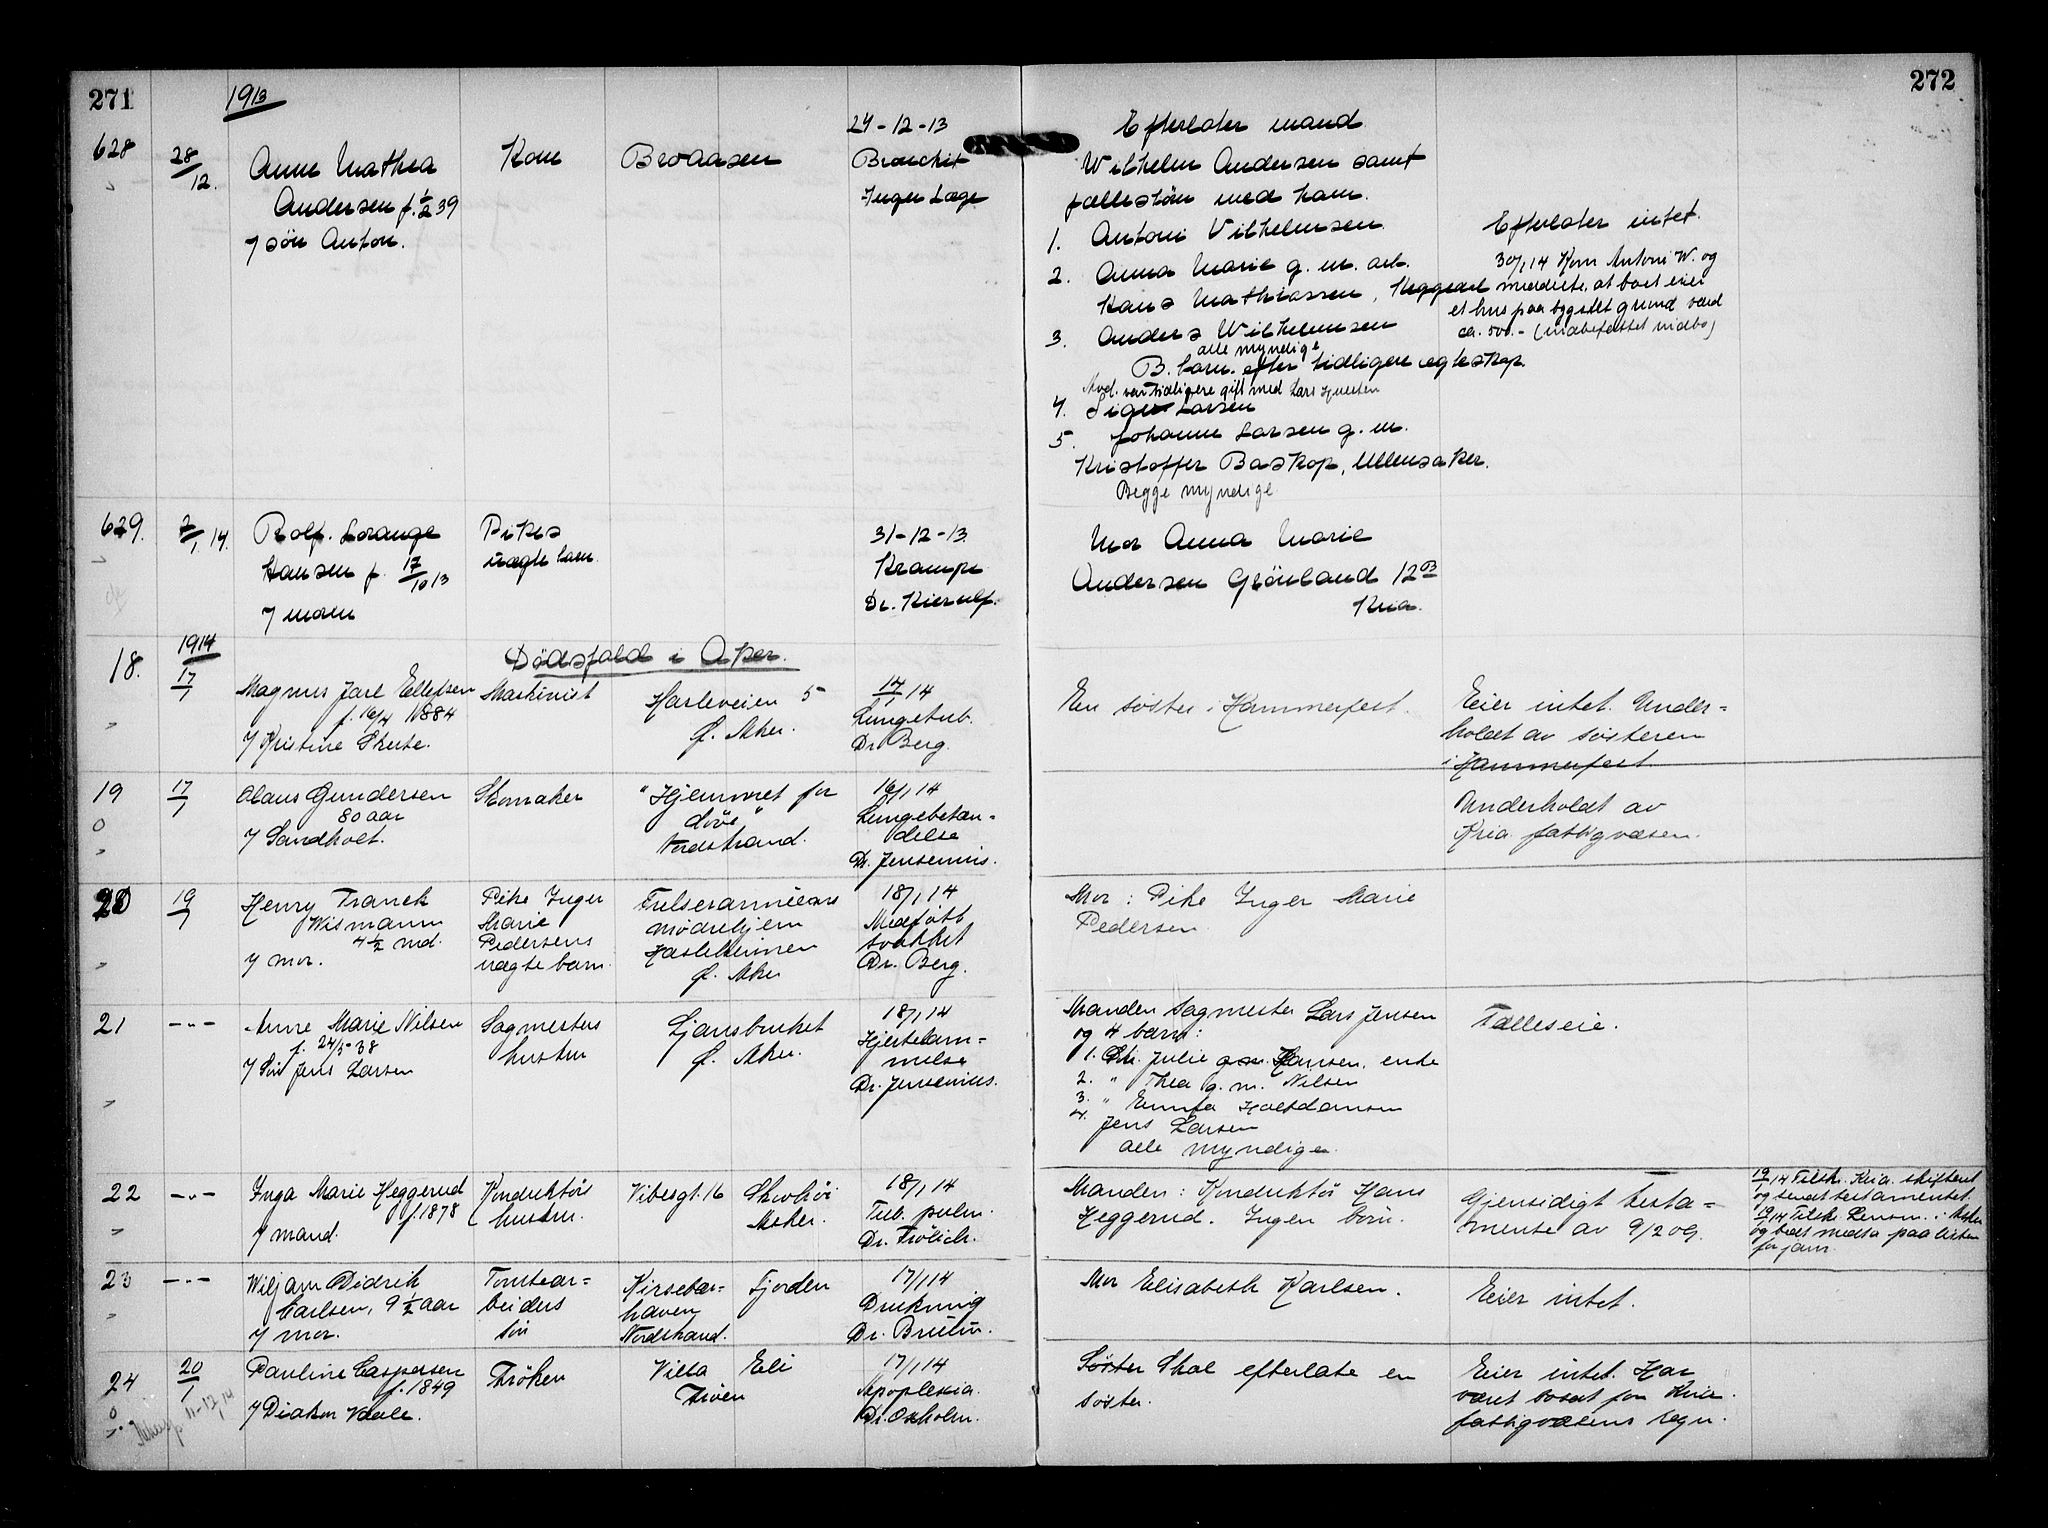 271
272
1913
628
28/12.
Anne Mathea
Andersen f. 1/2 39
7 søn Anton.
Kone
Broaasen
24-12-13
Bronchit
Ingen Læge
Efterlater mand
Wilhelm Andersen samt
fællesbørn med ham.
1. Antoni Vilhelmsen
2. Anna Marie g. m. arb.
Hans Mathiassen,
3. Anders Wilhelmsen
alle myndige
B. barn efter tidligere egteskap.
Avd. var tidligere gift med Lars
4. Larsen
5. Johanne Larsen g. m.
Kristoffer Baskop, Ullensaker.
Begge myndige
Efterlater intet.
30/1 14 Kom Antoni W. og
meddelte, at boet eier
et hus paa bygslet grund værd
ca. 500.- (indbefattet indbo)
629.
2/1 14.
Rolf. Lorange
Hansen f. 17/10 13
7 moren
Pikes
uægte barn
31-12-13
Krampe
Dr. Kierulf.
Mor Anna Marie
Andersen Grönland 12 B
Kria.
1914
Dödsfald i Aker.
18.
17/1
Magnus Jarl Ellefsen
f. 16/4 1884
7 Kristine Skute.
Maskinist
Hasleveien 5
Ø. Aker.
14/1 14
Lungetub.
Dr. Berg.
En søster i Hammerfest.
Eier intet. Under=
holdt av søsteren
i Hammerfest
19
17/1
Olaus Gundersen
80 aar
7 Sandholt.
Skomaker
"Hjemmet for
døve"
Nordstrand.
16/1 14
Lungebetæn-
delse
Dr. Jensenius.
Underholdt av
Kria fattigvæsen.
20
19/1
Henry Franck
Wismann
4 1/2 md.
7 mor.
Pike Inger
Marie
Pedersens
uægte barn
Frelsesarmeens
mødrehjem
Hasleheimen
Ø. Aker
18/1 14
Medfødt
svakhet
Dr. Berg.
Mor: Pike Inger Marie
Pedersen
21
-"-
Anne Marie Nilsen
f. 24/5 38
7 Søn Jens Larsen
Sagmesters
hustru
Ljansbruket
Ø. Aker.
18/1 14
Hjertelam=
melse
Dr. Jensenius.
Manden Sagmester Lars Jensen
og 4 barn:
1. Julie Hansen, enke
2. " Thea g. m. Nilsen
3. " Emma
4. Jens Larsen
alle myndige.
Fælleseie.
22
-"-
Inga Marie Heggerud
f. 1878
7 mand.
Konduktörs
hustru.
Vibesgt. 16
Skovhöi
Aker.
18/1 14
Tub. pulm.
Dr. Frölich.
Manden: Konduktör Hans
Heggerud. Ingen börn.
Gjensidigt testa=
mente av 9/2 09.
19/1 14 Tilsk. Kria. skifteret
og sendt testamentet.
19/1 14 Tilsk. Lensm. i Aker
og bedt paa listen
for jan.
23
-"-
Wiljam Didrik
Carlsen, 9 1/2 aar
7 mor.
Tomtear=
beiders
søn
Kirsebær=
haven
Nordstrand.
Fjorden
17/1 14
Drukning
Dr. Bruun.
Mor Elisabeth Karlsen.
Eier intet.
24
20/1
Pauline Caspersen
f. 1849
7 Diakon Vaale.
Frøken
Villa Eli
17/1 14
Apoplexia.
Dr. Oxholm.
Søster Skal efterlate en
søster.
Eier intet. Har
været bosat for Kria
fattigvæsens regn.
11-12/14